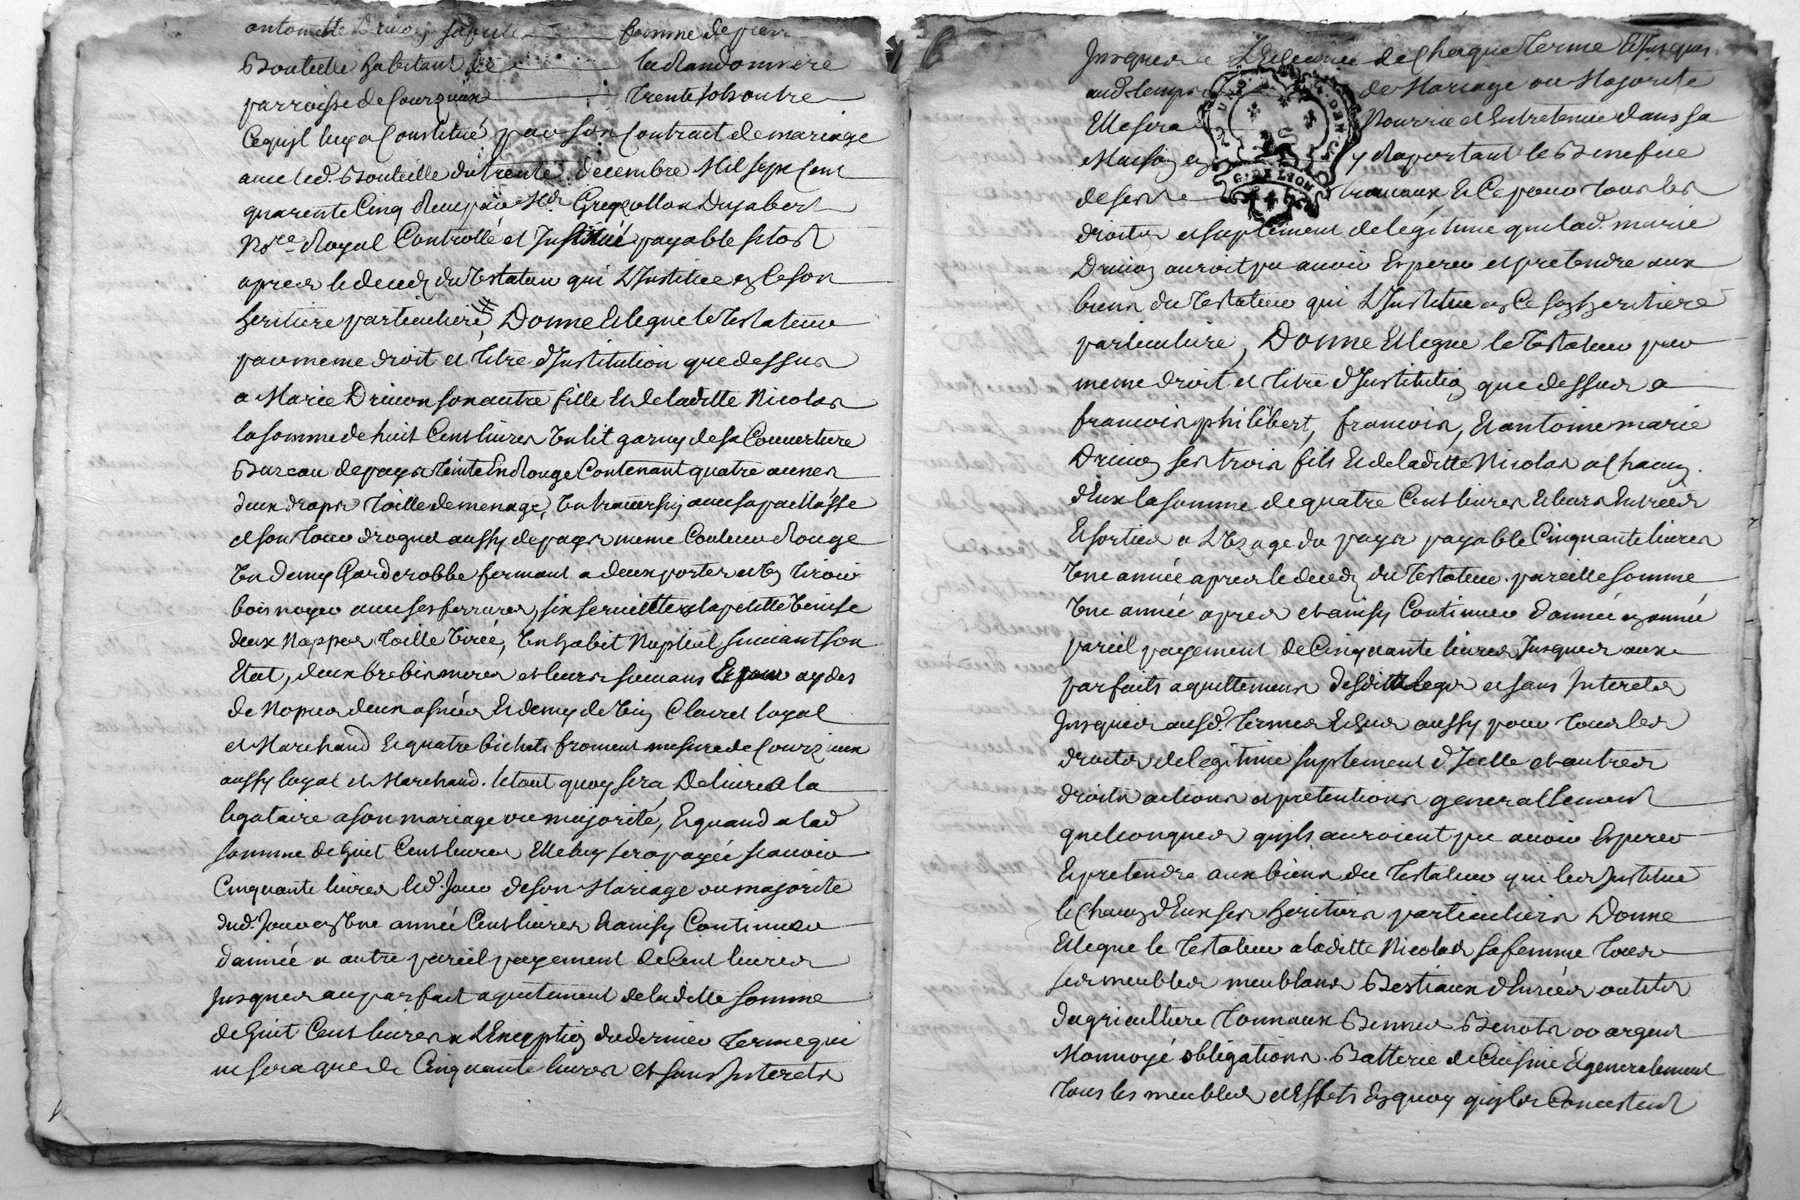 antoinette Drivon sa fille femme de pierre
Bouteille habitant de la Randonniere
parroisse de Courzieux trente sols outre
Cequ'il luy a Constitué par son Contract de mariage
avec led. Bouteille du trente decembre Mil sept Cent
quarente Cinq Receu par Me Dujabert
Nore Royal Controllé et Insinué payable sitost
apres le deced du testateur qui L'Institue en Ce son
heritiere particuliere, Donne et legue le testateur
par meme droit et titre d'Institution que dessus
a Marie Drivon son autre fille et de laditte Nicolas
la somme de huit Cent livres un lit garny de sa Couverture
Bureau de pays teinte En Rouge Contenant quatre aunes
deux draps toille de menage, un traversin avec sa paillasse
et son tour droguet aussy de pays meme Couleur Rouge
un demy Garderobbe fermant a deux portes et un tiroir
bois noyer avec ses ferrures, six serviettes la petitte Venise
deux Nappes toille tirée, un habit Nuptial suivant son
Etat, deux brebis meres et leurs suivans Et pour aydes
de Nopces deux asnées Et demy de vin Clairet loyal
et Marchand Et quatre bichets froment mesure de Courzieux
aussy loyal et Marchand. le tout quoy sera Delivré a la
legataire a son mariage ou majorité, Et quand a lad
somme de huit Cent livres Elle luy sera payée scavoir
Cinquante livres led. Jour de son Mariage ou majorité
dud. Jour en une année Cent livres Et ainsy Continuer
d'année a autre pareil payement de Cent livres
Jusques au parfait aquitement de laditte somme
de huit Cent livres a L'Exception du dernier terme qui
ne sera que de Cinquante livres et sans Interets
Jusques a L'Echeance de Chaque terme Et Jusques
aud. temps de Mariage ou Majorité
Elle sera Nourrie et Entretenue dans sa
Maison en y Raportant le Benefice
de ses travaux Et Ce pour tous les
droits et suplement de légitime que lad. marie
Drivon auroit pu avoir Esperer et pretendre aux
biens du Testateur qui L'Institue en Ce son heritiere
particuliere, Donne Et legue le Testateur par
meme droit et titre d'Institution que dessus a
francois philibert, francois, Et antoine marie
Drivon ses trois fils Et de laditte Nicolas a Chacun
d'Eux la somme de quatre Cent livres Et leurs Entrées
Et sorties a L'Uzage du pays payable Cinquante livres
une année apres le deced du testateur. pareille somme
une année apres et ainsy Continuer d'année en année
pareil payement de Cinquante livres Jusques aux
parfaits aquittemens desditts legs et sans Interets
Jusques ausd. termes Et Eux aussy pour tous les
droits de legitime suplement d'Icelle et autres
droits actions et pretentions generallement
quelconques qu'ils auroient pu avoir Esperer
Et pretendre aux biens du Testateur qui les Institue
le Chacun d'Eux ses heritiers particuliers Donne
Et legue le Testateur a laditte Nicolas sa femme tous
ses meubles meublans Bestiaux d'Envies outils
dagriculture tonneaux Bennes Benots or argent
Monnoyé obligations Batterie de Cuisine Et generalement
tous les meubles et Effets En quoy qu'ils Concistent
G. DE LYON